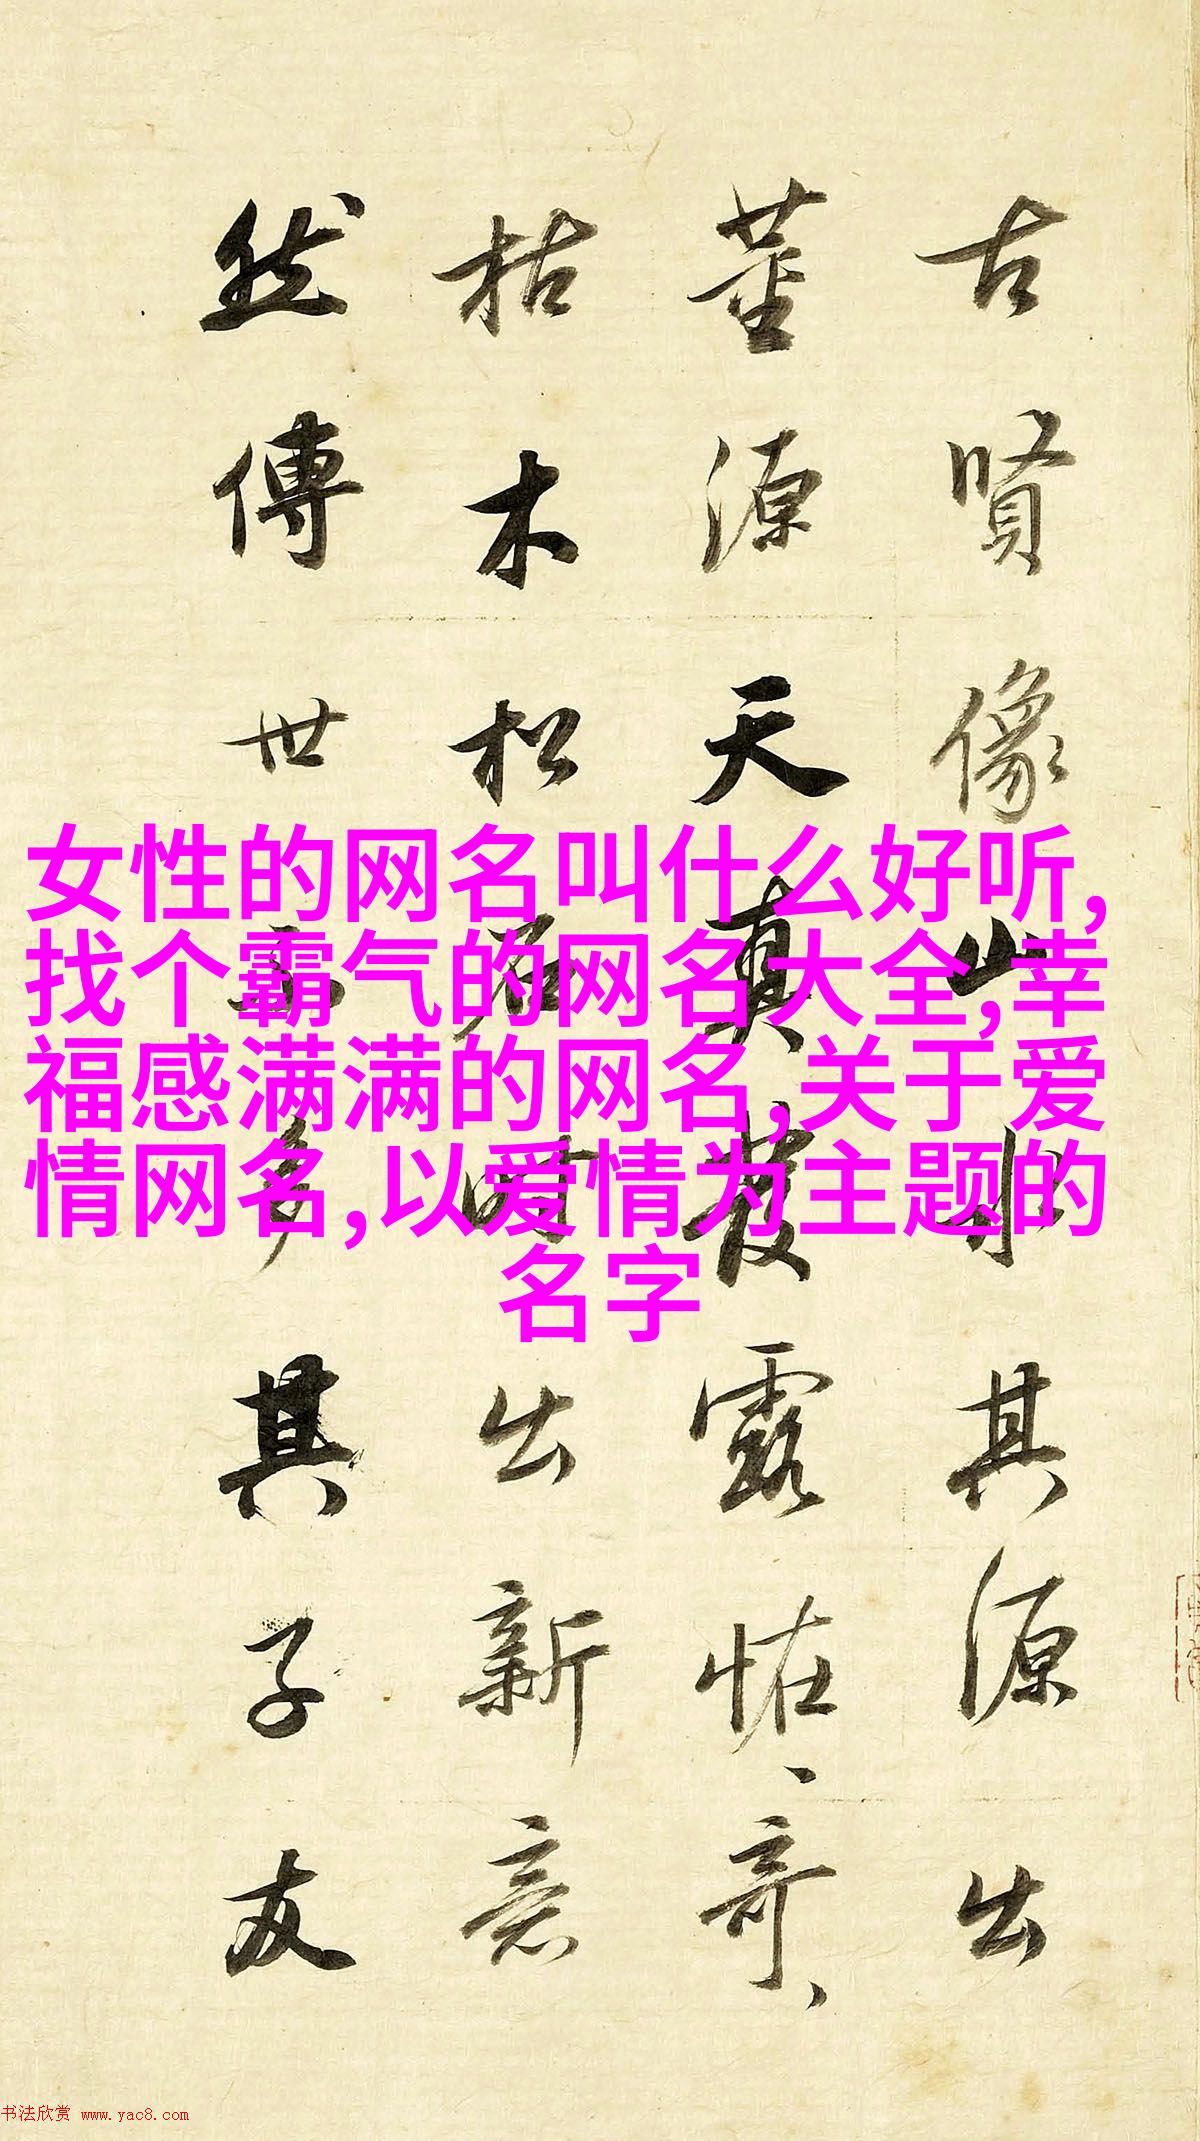 古賢像山水其源出
董源天真發露恠、奇、
枯木松石時出新意
然傳世不多其子友
女性的网名叫什么好听,
找个霸气的网名大全,幸
福感满满的网名,关于爱
情网名,以爱情为主题的
名字
书法欣赏 www.yac8.com